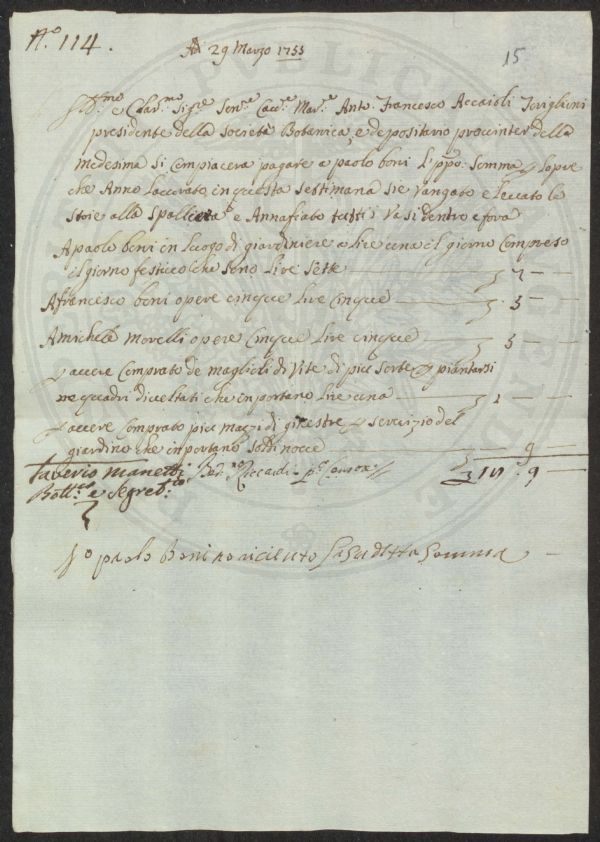 N.º 114.
Adi 29 Marzo 1755
15
Ill.mo e Clar.mo Sig.re Sen.re Cav.re Mar.se Anto: Francesco Acciaioli Toriglioni
presidente della Società Botanica, e depositario pro interi della
medesima si Compiacera pagare a paolo boni l'appo: Somma p lopre
che Anno Lavorato in questa settimana sie Vangato e Levato le
stoie alla Spalliera e Annafiato tutti i Vasi dentro e fora
A paolo boni in luogo di giardiniere a Lire una il giorno Compreso
il giorno festivo che sono Lire Sette 7
A francesco boni opere cinque Lire Cinque 5
A michele Morelli opere Cinque Lire cinque 5
p avere Comprato de maglioli di Vite di piu sorte p piantarsi
ne quadri diveltati che inportano Lire una 1
p avere Comprato piu mazzi di ginestre p servizio del
giardino che inportano soldi nove 9
Saverio Manetti
Bott.co e Segret.rio
18 9
Io paolo boni o riceuto La Sudetta Somma